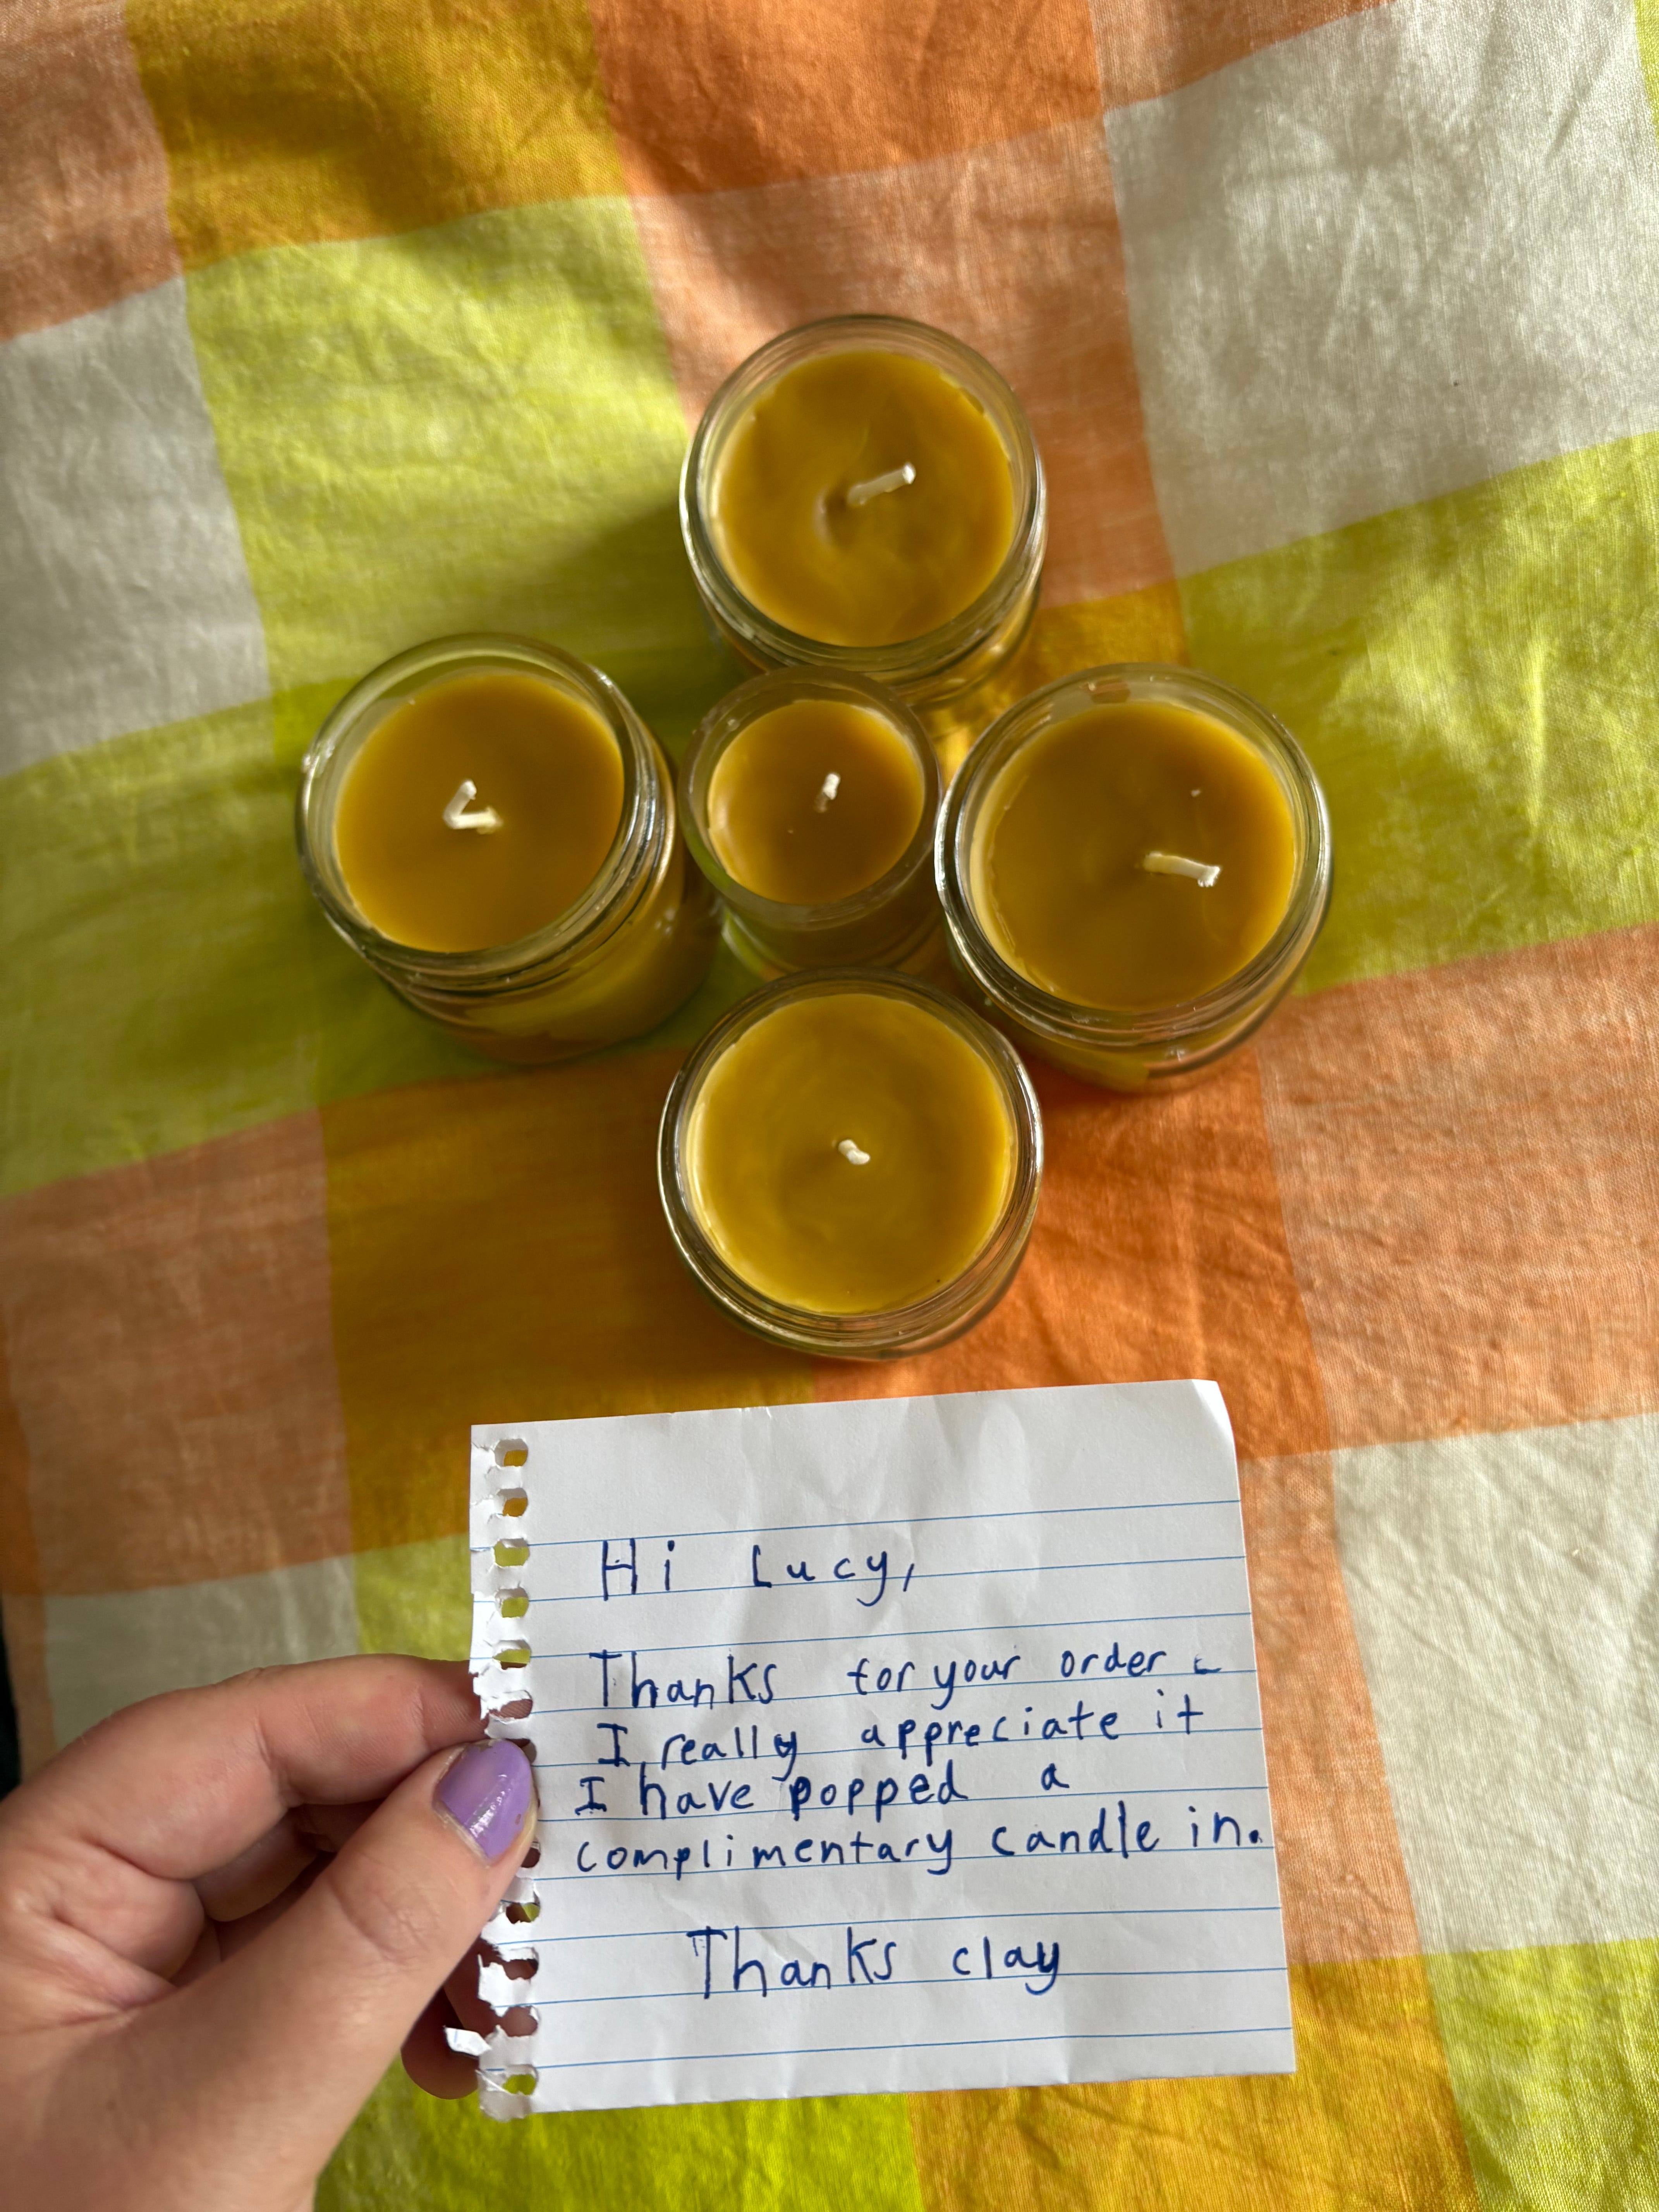 Hi Lucy,
Thanks for your order
I really appreciate it
I have popped a
complimentary candle in.
Thanks clay